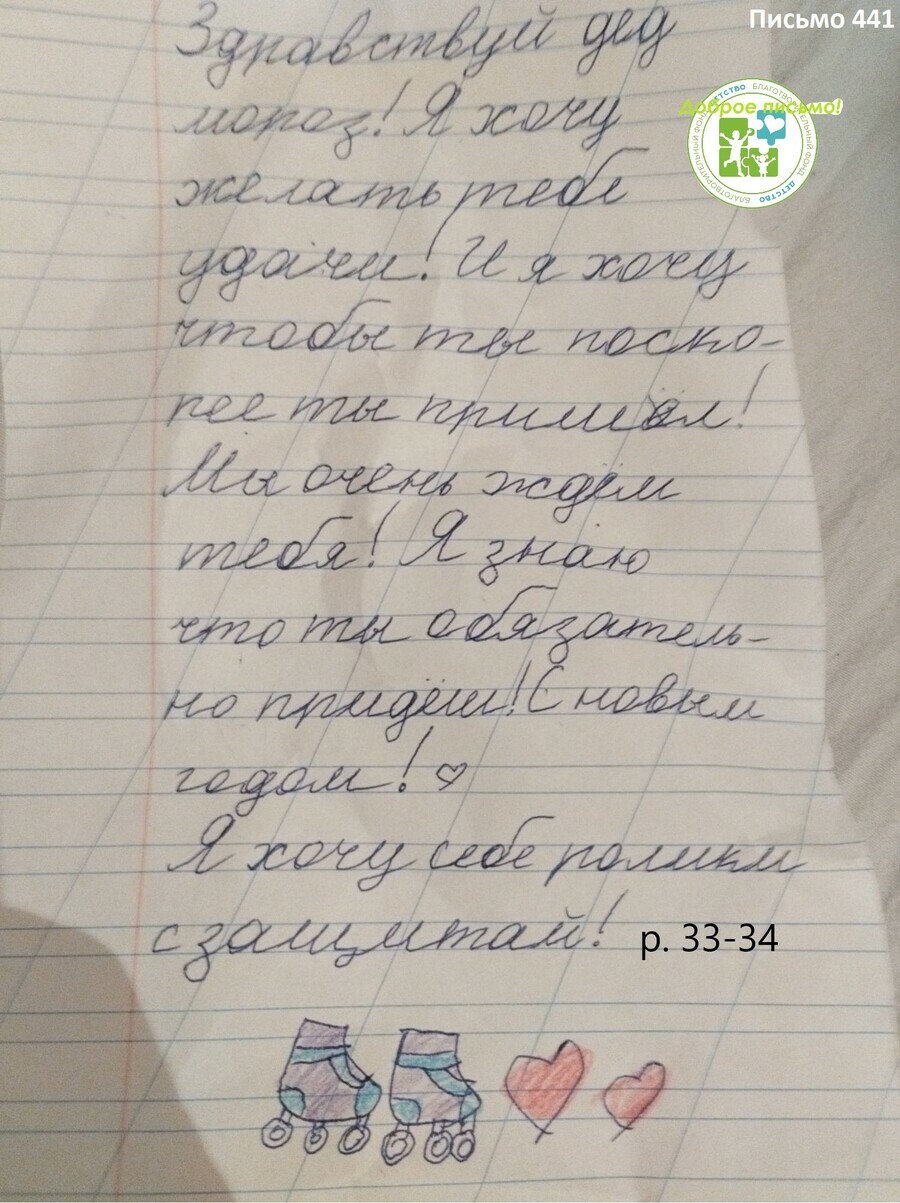 Письмо 441
Доброе письмо!
БЛАГОТВОРИТЕЛЬНЫЙ ФОНД ДЕТСТВО БЛАГОТВОРИТЕЛЬНЫЙ ФОНД ДЕТСТВО
Здравствуй дед
мороз! Я хочу
желать тебе
удачи! И я хочу
чтобы ты поско-
рее ты пришёл!
Мы очень ждём
тебя! Я знаю
что ты обязатель-
но придёш! С новым
годом! ♡
Я хочу себе ролики
с защитай!
р. 33-34